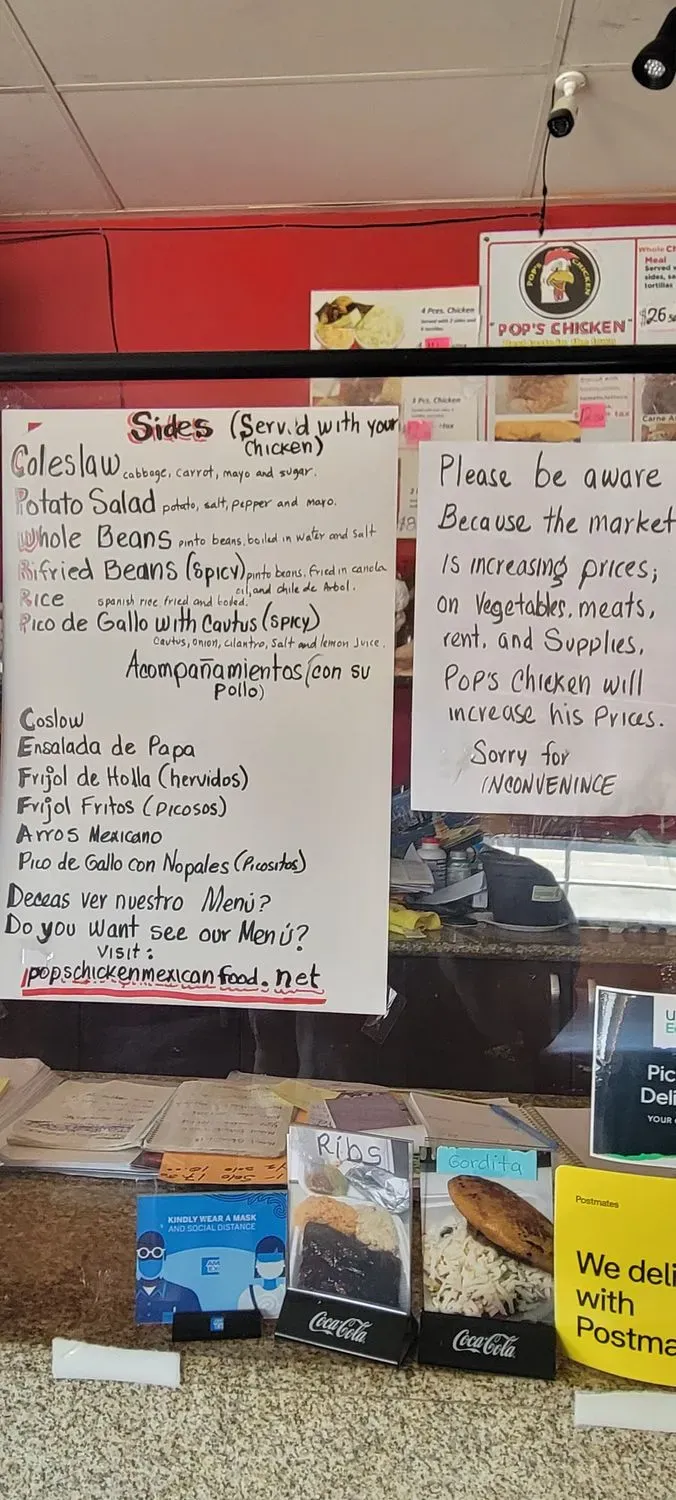 POP'S CHICKEN
"POP'S CHICKEN"
Whole
Meal
Served
sides,
tortillas
$26
4 Pces. Chicken
Served with 2 sides and
3 Pcs. Chicken
+tax
+ tax
Carne
Sides (Serv.d with your
Chicken)
Coleslaw cabbage, carrot, mayo and sugar.
Potato Salad potato, salt, pepper and mayo.
Whole Beans pinto beans, boiled in water and salt
Rifried Beans (spicy) pinto beans, fried in canola
oil, and chile de Arbol.
Rice spanish rice fried and boiled.
Pico de Gallo with Cautus (spicy)
Cautus, onion, cilantro, salt and lemon Juice.
Acompañamientos (con su
pollo)
Coslow
Ensalada de Papa
Frijol de Holla (hervidos)
Frijol Fritos (picosos)
Arros Mexicano
Pico de Gallo con Nopales (Picositos)
Deceas ver nuestro Menú?
Do you want see our Menú?
Visit:
popschickenmexicanfood.net
Please be aware
Because the market
is increasing prices;
on vegetables, meats,
rent, and Supplies,
Pop's Chicken will
increase his Prices.
Sorry for
INCONVENINCE
Pic
Deli
YOUR
KINDLY WEAR A MASK
AND SOCIAL DISTANCE
AM
EX
Ribs
Coca-Cola
Gordita
Coca-Cola
Postmates
We deli
with
Postma